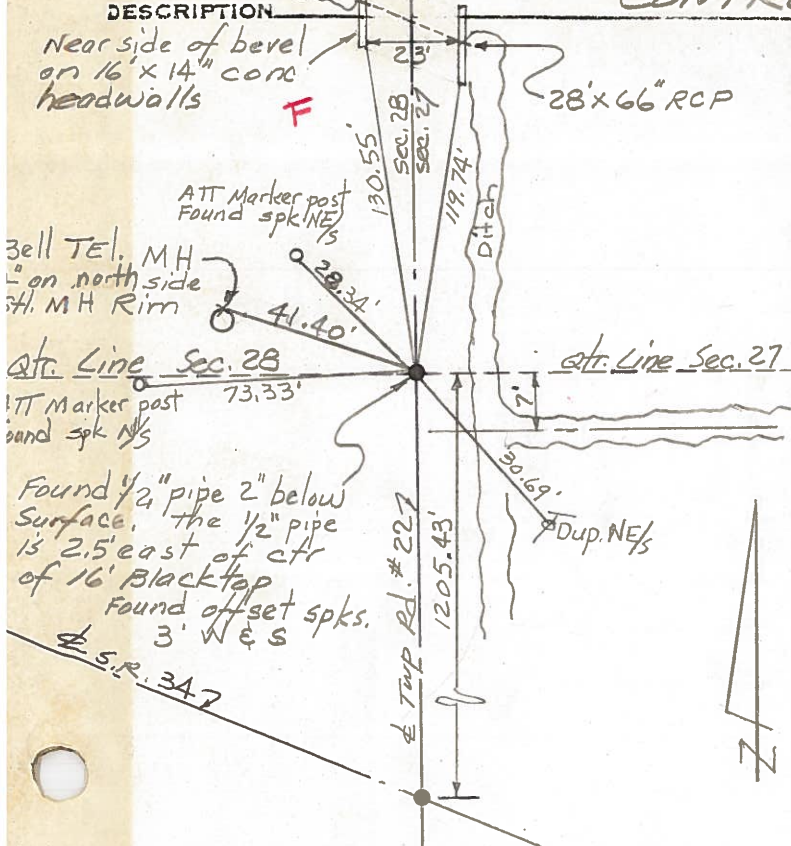 DESCRIPTION
Near side of bevel
on 16' x 14" conc
headwalls
F
23'
28' x 66" RCP
130.55'
Sec. 28
Sec. 27
119.74'
Ditch
ATT Marker post
Found spk NE/s
Bell TEL. MH
on north side
MH Rim
28.34'
41.40'
Qtr. Line Sec. 28
Qtr. Line Sec. 27
73.33'
ATT Marker post
Found spk N/s
7'
30.69'
Dup. NE/s
Found 1/2" pipe 2" below
Surface. the 1/2" pipe
is 2.5' east of ctr
of 16' Blacktop
Found offset spks.
3' W & S
℄ Twp Rd. #227
1205.43'
℄ S.R. 347
N